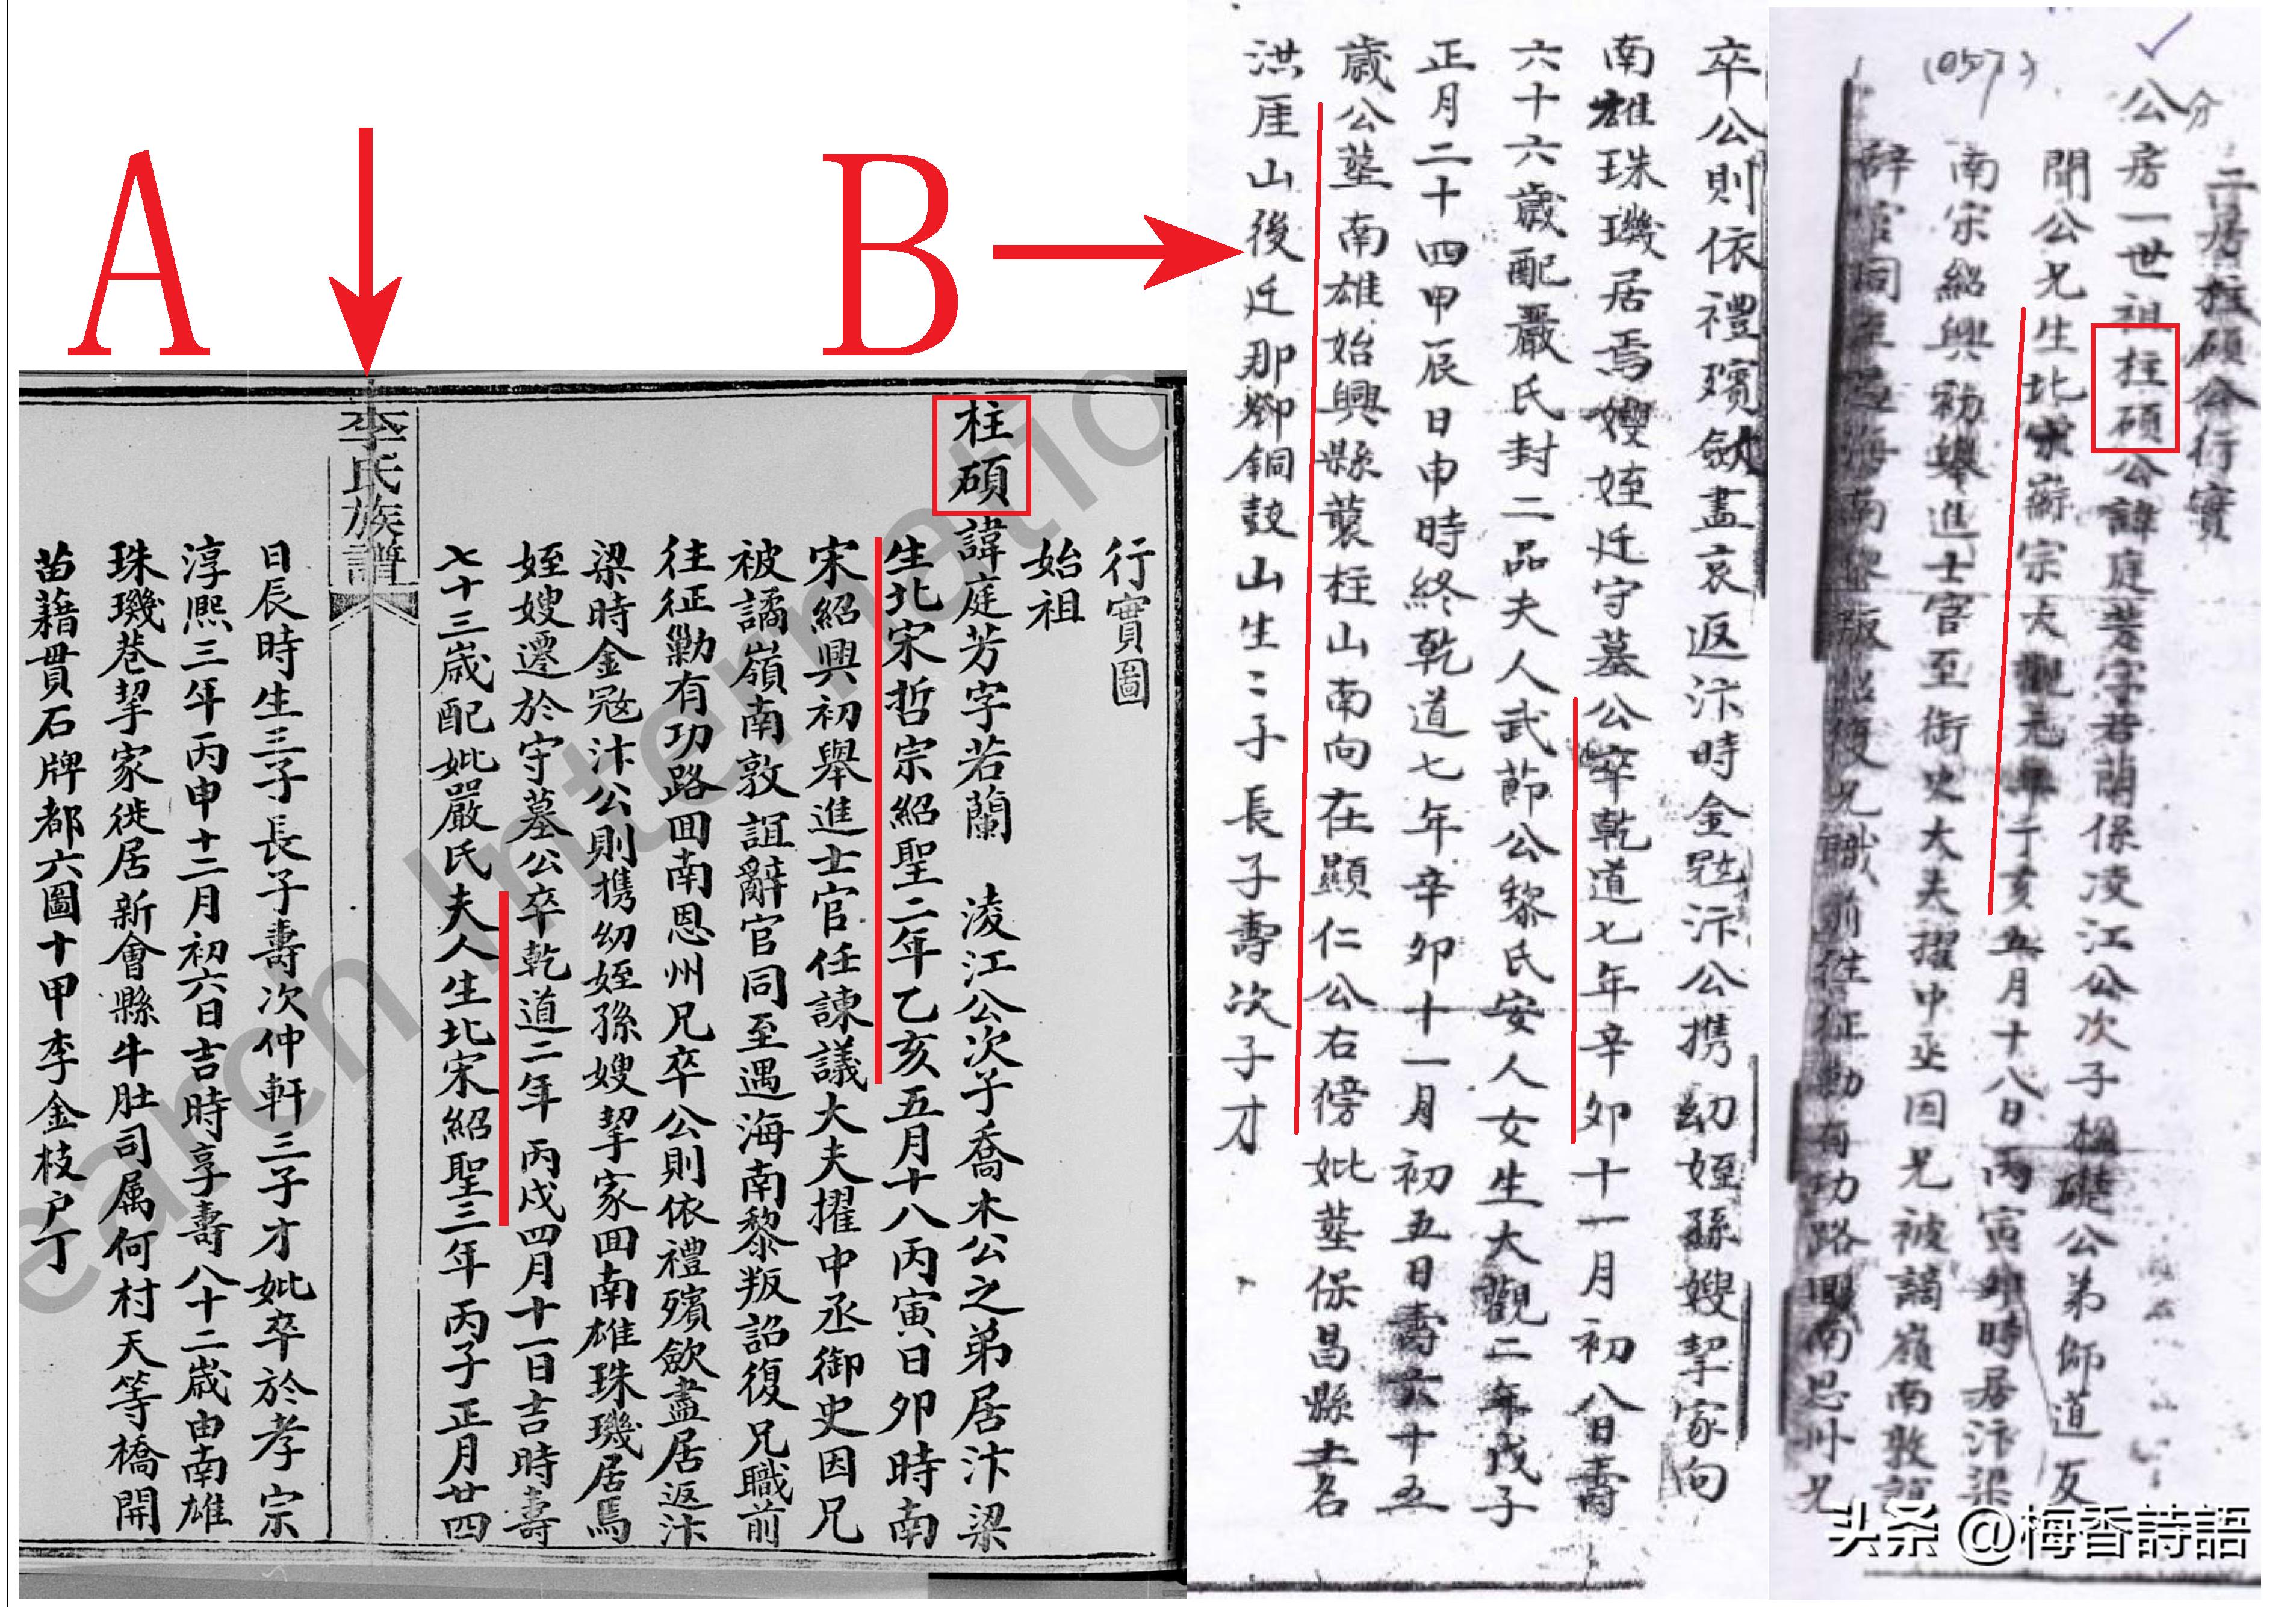 A
B
行實圖
始祖
柱碩諱庭芳字若蘭 淩江公次子喬木公之弟居汴梁
生北宋哲宗紹聖二年乙亥五月十八丙寅日卯時南
宋紹興初舉進士官任諫議大夫擢中丞御史因兄
被謫嶺南敦誼辭官同至遇海南黎叛詔復兄職前
往征勦有功路囬南恩州兄卒公則依禮殯歛盡居返汴
梁時金寇汴公則携幼姪孫嫂挈家囬南雄珠璣居焉
姪嫂遷於守墓公卒乾道二年丙戌四月十一日吉時壽
七十三歲配妣嚴氏夫人生北宋紹聖三年丙子正月廿四
李氏族譜
日辰時生三子長子壽次仲軒三子才妣卒於孝宗
淳熙三年丙申十二月初六日吉時享壽八十二歲由南雄
珠璣巷挈家徙居新會縣牛肚司属何村天等橋開
苗藉貫石牌都六圖十甲李金枝户丁
分
二房柱碩公行實
公房一世祖柱碩公諱庭芳字若蘭係凌江公次子楹礎公弟師道友
聞公兄生北宋徽宗大觀元年丁亥五月十八日丙寅卯時居汴梁
(057)
南宋紹興初舉進士官至御史大夫擢中丞因兄被謫嶺南敦誼
辭官同至遇海南黎叛詔復兄職前往征勦有功路囬南恩州兄
卒公則依禮殯歛盡哀返汴時金寇汴公携幼姪孫嫂挈家向
南雄珠璣居焉嫂姪迁守墓公卒乾道七年辛卯十一月初八日壽
六十六歲配嚴氏封二品夫人武節公黎氏安人女生大觀二年戊子
正月二十四甲辰日申時終乾道七年辛卯十一月初五日壽六十五
歲公墓南雄始興縣蓑柱山南向在顯仁公右傍妣墓保昌縣土名
洪厓山後迁那鄉銅鼓山生二子長子壽次子才
头条 @梅香詩語